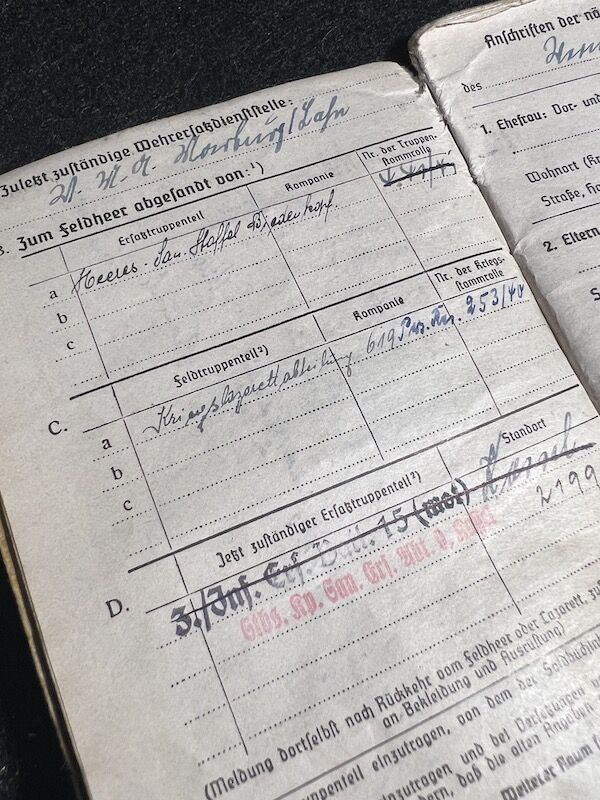 Zuletzt zuständige Wehrersatzdienststelle:
W. M. A Marburg/Lahn
B. Zum Feldheer abgesandt von:¹)
Ersatztruppenteil Kompanie Nr. der Truppenstammrolle
a Heeres-San. Staffel Biedenkopf.
b
c
C. Feldtruppenteil²) Kompanie Nr. der Kriegsstammrolle
a Kriegslazarettabteilung 619 253/40
b
c
D. Jetzt zuständiger Ersatztruppenteil²) Standort
3./Inf. Ers. Batl. 15 (mot) Kassel
Stbs. Kp. San. Ers. Abt. 9, 2199
(Meldung dortselbst nach Rückkehr vom Feldheer oder Lazarett, zu
an Bekleidung und Ausrüstung)
ppenteil einzutragen, von dem der Soldbuchin
einzutragen und bei Versetzungen
dern, daß die alten Angaben
Weiterer Raum
Anschriften der nä
des
1. Ehefrau: Vor- und
Wohnort (Kr
Straße, Ha
2. Eltern